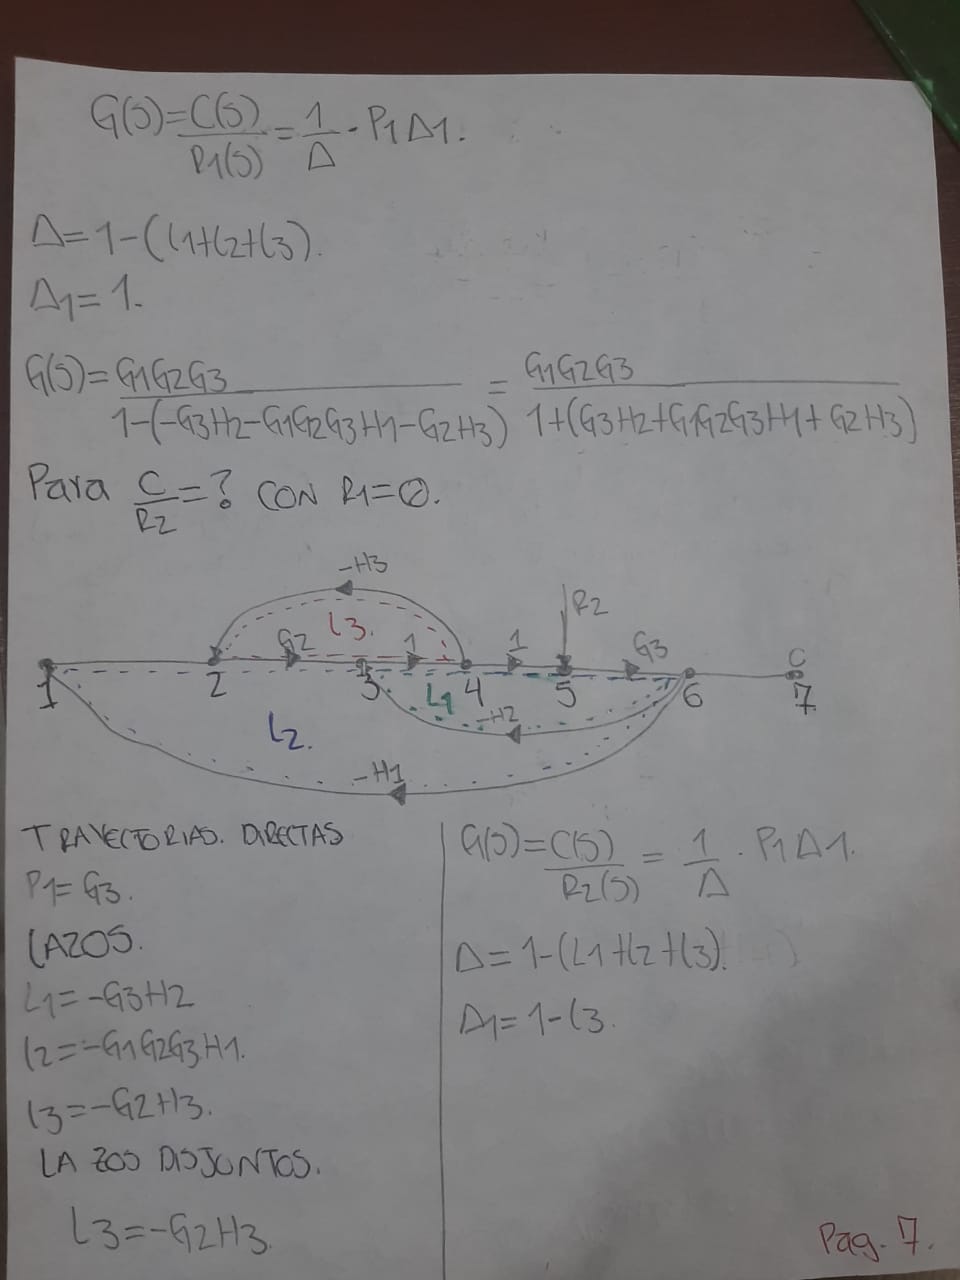 G(S)=C(S)/R1(S)=1/Δ·P1Δ1.
Δ=1-(L1+L2+L3).
Δ1=1.
G(S)=G1G2G3/1-(-G3H2-G1G2G3H1-G2H3)=G1G2G3/1+(G3H2+G1G2G3H1+G2H3)
Para C/R2=? CON R1=0.
-H3
R2
G2
L3.
1
1
G3
C
1
2
3
L1
4
5
6
7
-H2
L2.
-H1
TRAYECTORIAS. DIRECTAS
P1=G3.
LAZOS.
L1=-G3H2
L2=-G1G2G3H1.
L3=-G2H3.
LAZOS DISJUNTOS.
L3=-G2H3.
G(S)=C(S)/R2(S)=1/Δ·P1Δ1.
Δ=1-(L1+L2+L3).
Δ1=1-L3.
Pag. 7.